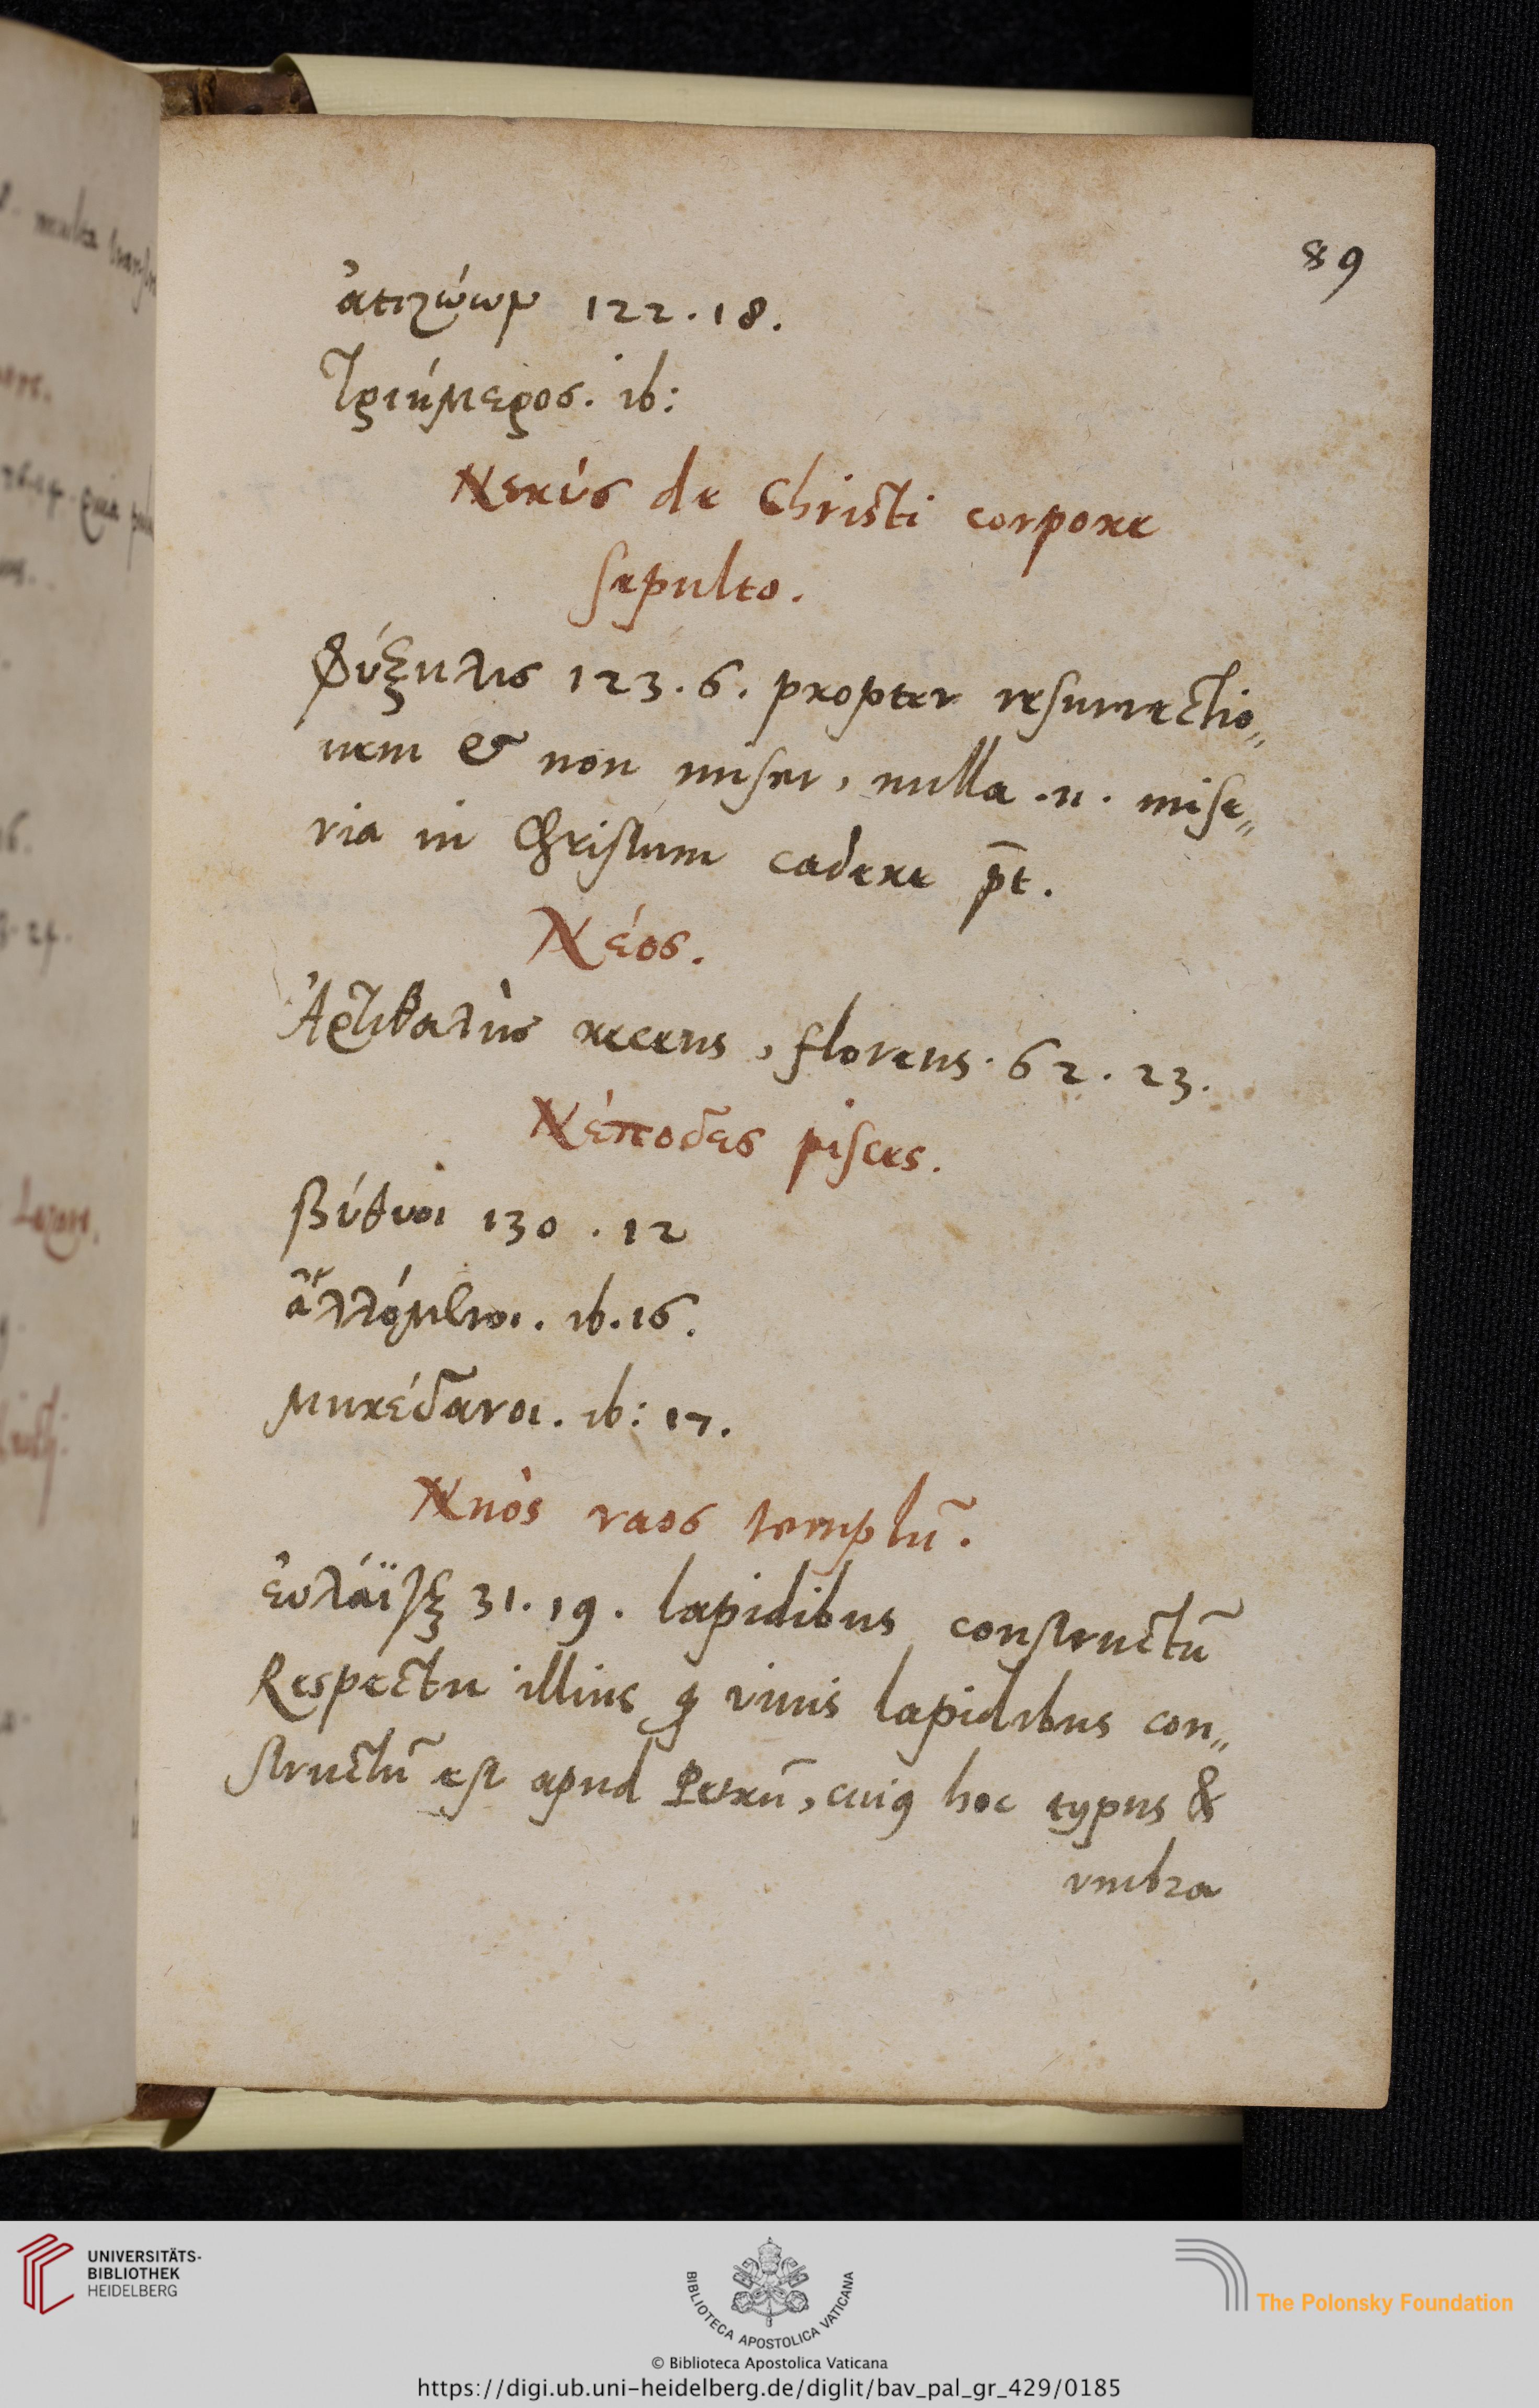 89
ἀτιζώων 122.18.
Τριήμερος. ib:
Νεκύς de Christi corpore
sepulto.
Φύξηλις 123.6. propter resurrectio„
nem & non miser, nulla .n. mise„
ria in Christum cadere p̄t.
Νέος.
Ἀρτιθαλὴς recens, florens. 62.23.
Νέποδες pisces.
βύθιοι 130.12
ib.16.
μηκέδανοι. ib: 17.
Νηὸς ναος templũ.
ἐυλάϊγξ 31.19. lapidibus constructũ
Respectu illius q vivis lapidibus con„
structũ est apud Petrũ, cuiꝯ hoc typus &
vmbra
UNIVERSITÄTS-
BIBLIOTHEK
HEIDELBERG
BIBLIOTECA APOSTOLICA VATICANA
The Polonsky Foundation
© Biblioteca Apostolica Vaticana
https://digi.ub.uni-heidelberg.de/diglit/bav_pal_gr_429/0185